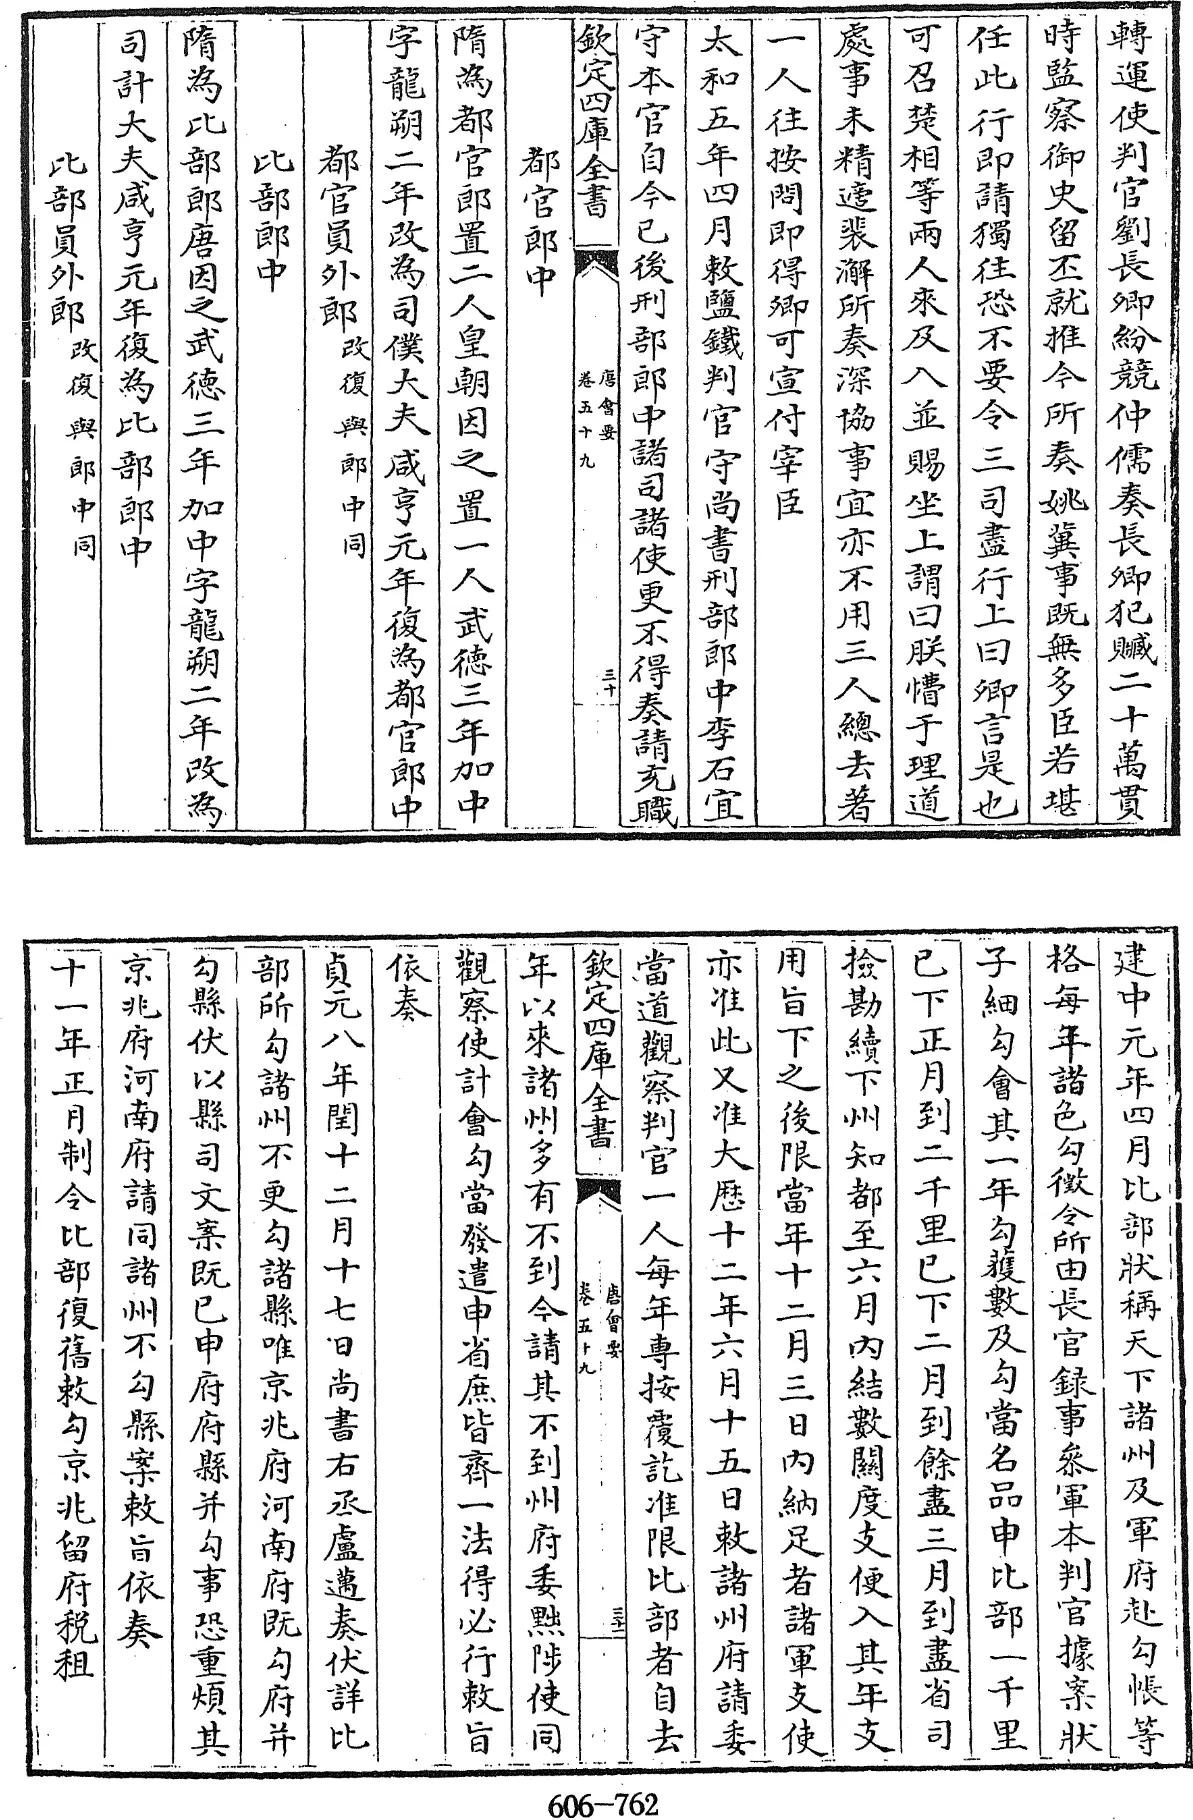 轉運使判官劉長卿紛競仲儒奏長卿犯贓二十萬貫
時監察御史留丕就推今所奏姚驥事既無多臣若堪
任此行即請獨往恐不要令三司盡行上曰卿言是也
可召楚相等兩人來及入並賜坐上謂曰朕懵于理道
處事未精適裴澥所奏深協事宜亦不用三人總去著
一人往按問即得卿可宣付宰臣
太和五年四月敕鹽鐵判官守尚書刑部郎中李石宜
守本官自今已後刑部郎中諸司諸使更不得奏請充職
欽定四庫全書
唐會要
卷五十九
三十
都官郎中
隋為都官郎置二人皇朝因之置一人武德三年加中
字龍朔二年改為司僕大夫咸亨元年復為都官郎中
都官員外郎改復與郎中同
比部郎中
隋為比部郎唐因之武德三年加中字龍朔二年改為
司計大夫咸亨元年復為比部郎中
比部員外郎改復與郎中同
建中元年四月比部狀稱天下諸州及軍府赴勾帳等
格每年諸色勾徵令所由長官録事叅軍本判官據案狀
子細勾會其一年勾獲數及勾當名品申比部一千里
已下正月到二千里已下二月到餘盡三月到盡省司
撿勘續下州知都至六月內結數關度支便入其年支
用旨下之後限當年十二月三日內納足者諸軍支使
亦准此又准大歴十二年六月十五日敕諸州府請委
當道觀察判官一人每年專按覆訖准限比部者自去
欽定四庫全書
唐會要
卷五十九
三十一
年以來諸州多有不到今請其不到州府委黜陟使同
觀察使計會勾當發遣申省庶皆齊一法得必行敕旨
依奏
貞元八年閏十二月十七日尚書右丞盧邁奏伏詳比
部所勾諸州不更勾諸縣唯京兆府河南府既勾府并
勾縣伏以縣司文案既已申府府縣并勾事恐重煩其
京兆府河南府請同諸州不勾縣案敕旨依奏
十一年正月制令比部復舊敕勾京兆留府税租
606-762